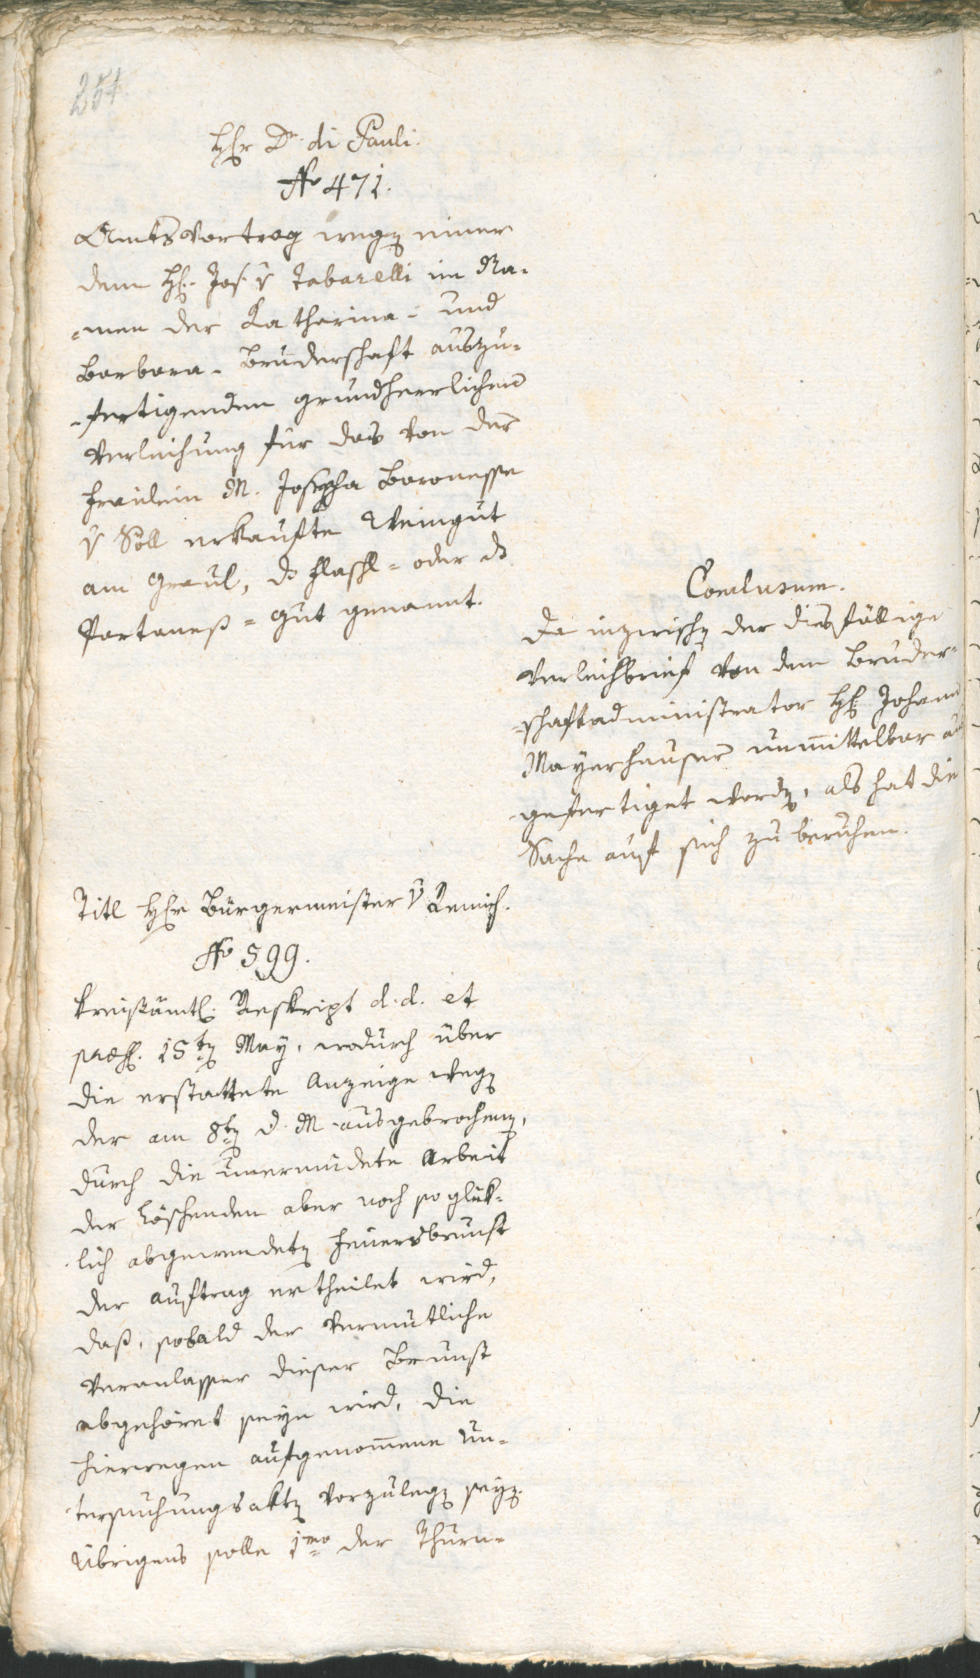 254
Hr Dr. di Pauli.
No 471.
Amtsvortrag wegen einer
dem H. Jos. v Tabarelli im Na-
-men der Katharina- und
Barbara-Bruderschaft auszu-
-fertigenden grundherrlichen
Verleihung für das von der
Fräulein M. Josepha Baronesse
v Söll erkaufte Weingut
am Graul, das - oder das
- gut genannt.
Conclusum.
Da inzwischen der diesfällige
Verleihbrief von dem Bruder-
-schaftadministrator H. Johann
Mayrhauser unmittelbar aus
gefertiget worden, als hat die
Sache auf sich zu beruhen.
Titl Hr Bürgermeister v Remich.
No 599.
Kreisämtl. Reskript d.d. et
praes. 15ten May, wodurch über
die erstattete Anzeige wegen
der am 8ten d. M ausgebrochenen,
durch die unermüdete Arbeit
der Löschenden aber noch so glük-
lich abgewendeten Feuersbrunst
der Auftrag ertheilet wird,
daß, sobald der vermutliche
Veranlasser dieser Brunst
abgehöret seyn wird, die
hierwegen aufgenommene Un-
tersuchungsakten vorzulegen seyen.
Übrigens solle 1mo der Thurn-